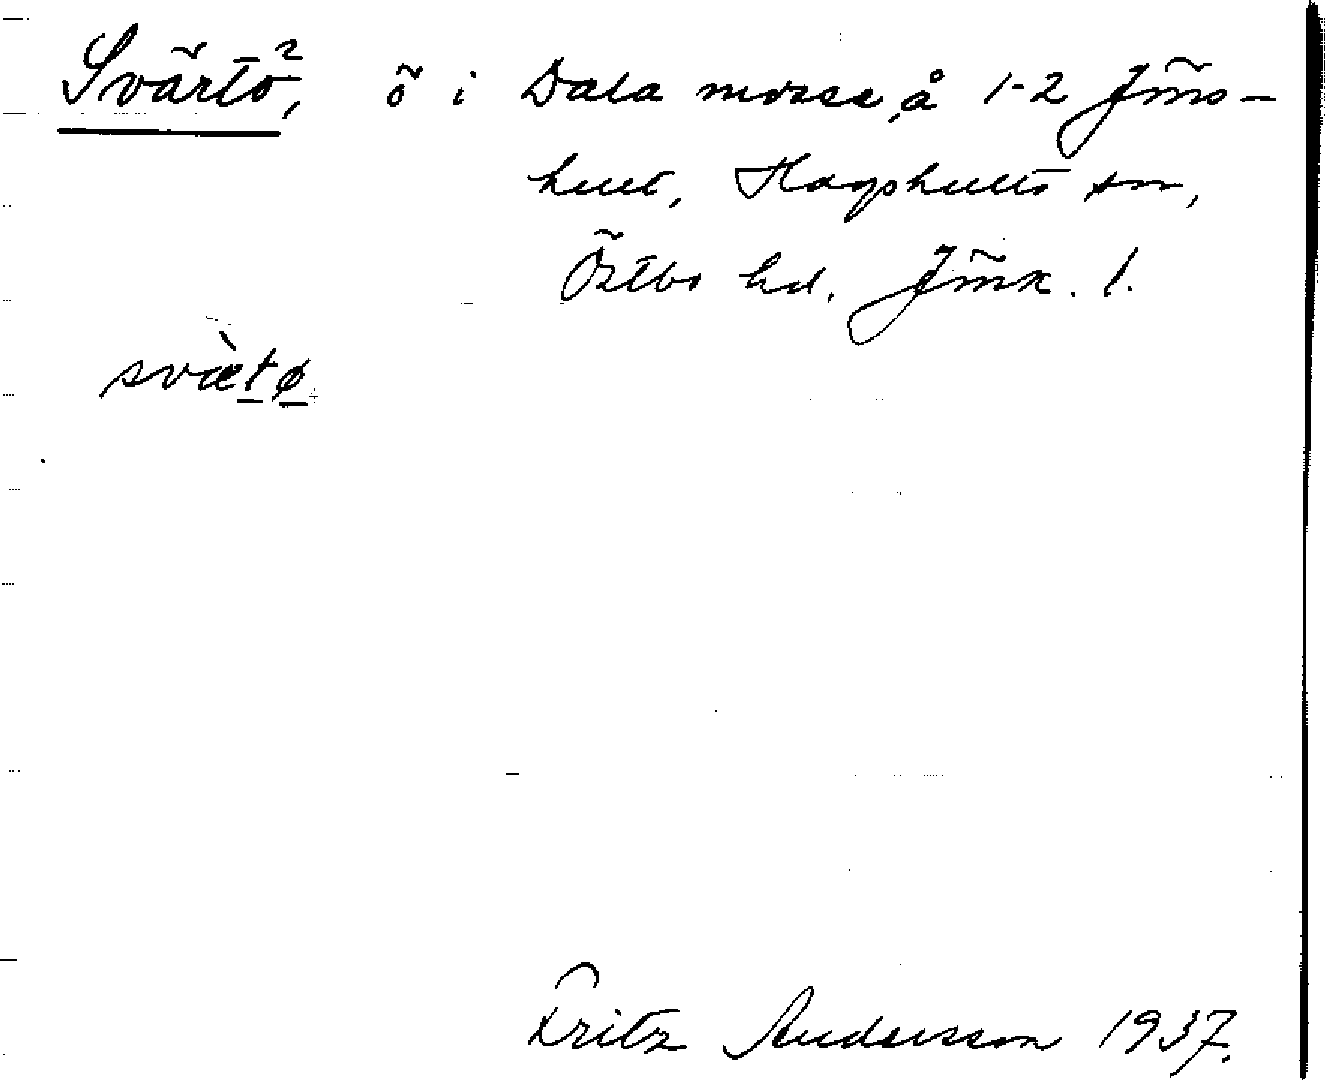 Svärtö², ö i Dala mosse, å 1-2 Jäms-
hult, Hagshults sn,
Östbo hd. Jönk. l.
svætø
Fritz Andersson 1937.